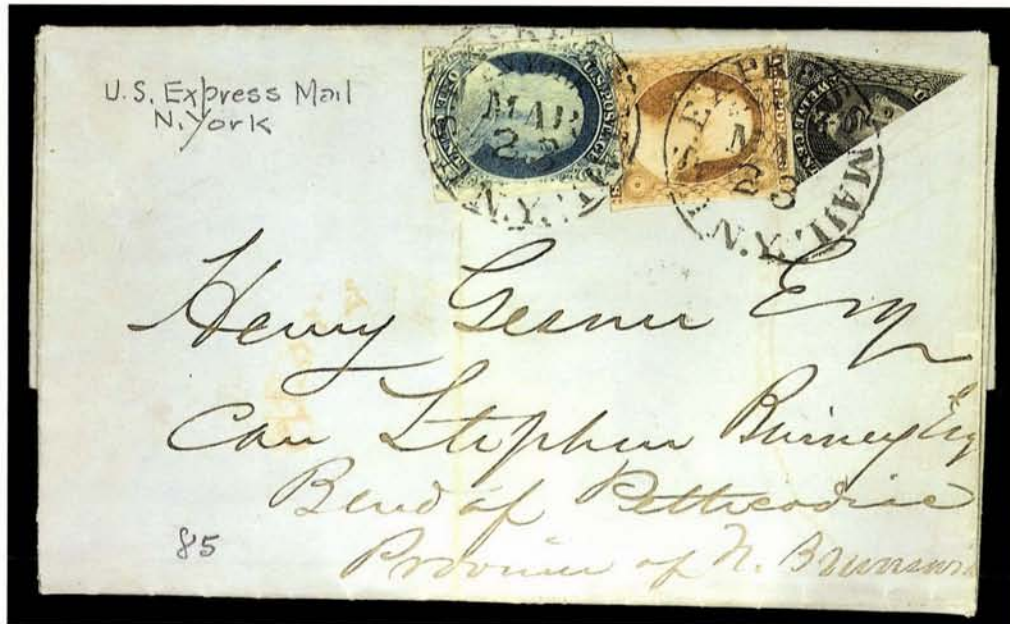 U.S. Express Mail
N. York
MAR
23
N.Y.
U.S. POSTAGE
ONE CENT
U.S. EXPRESS MAIL N.Y.
Henry Gesner Esq
Care Stephen Binney Esq
Bend of Petticodiac
Province of N. Brunswi
85